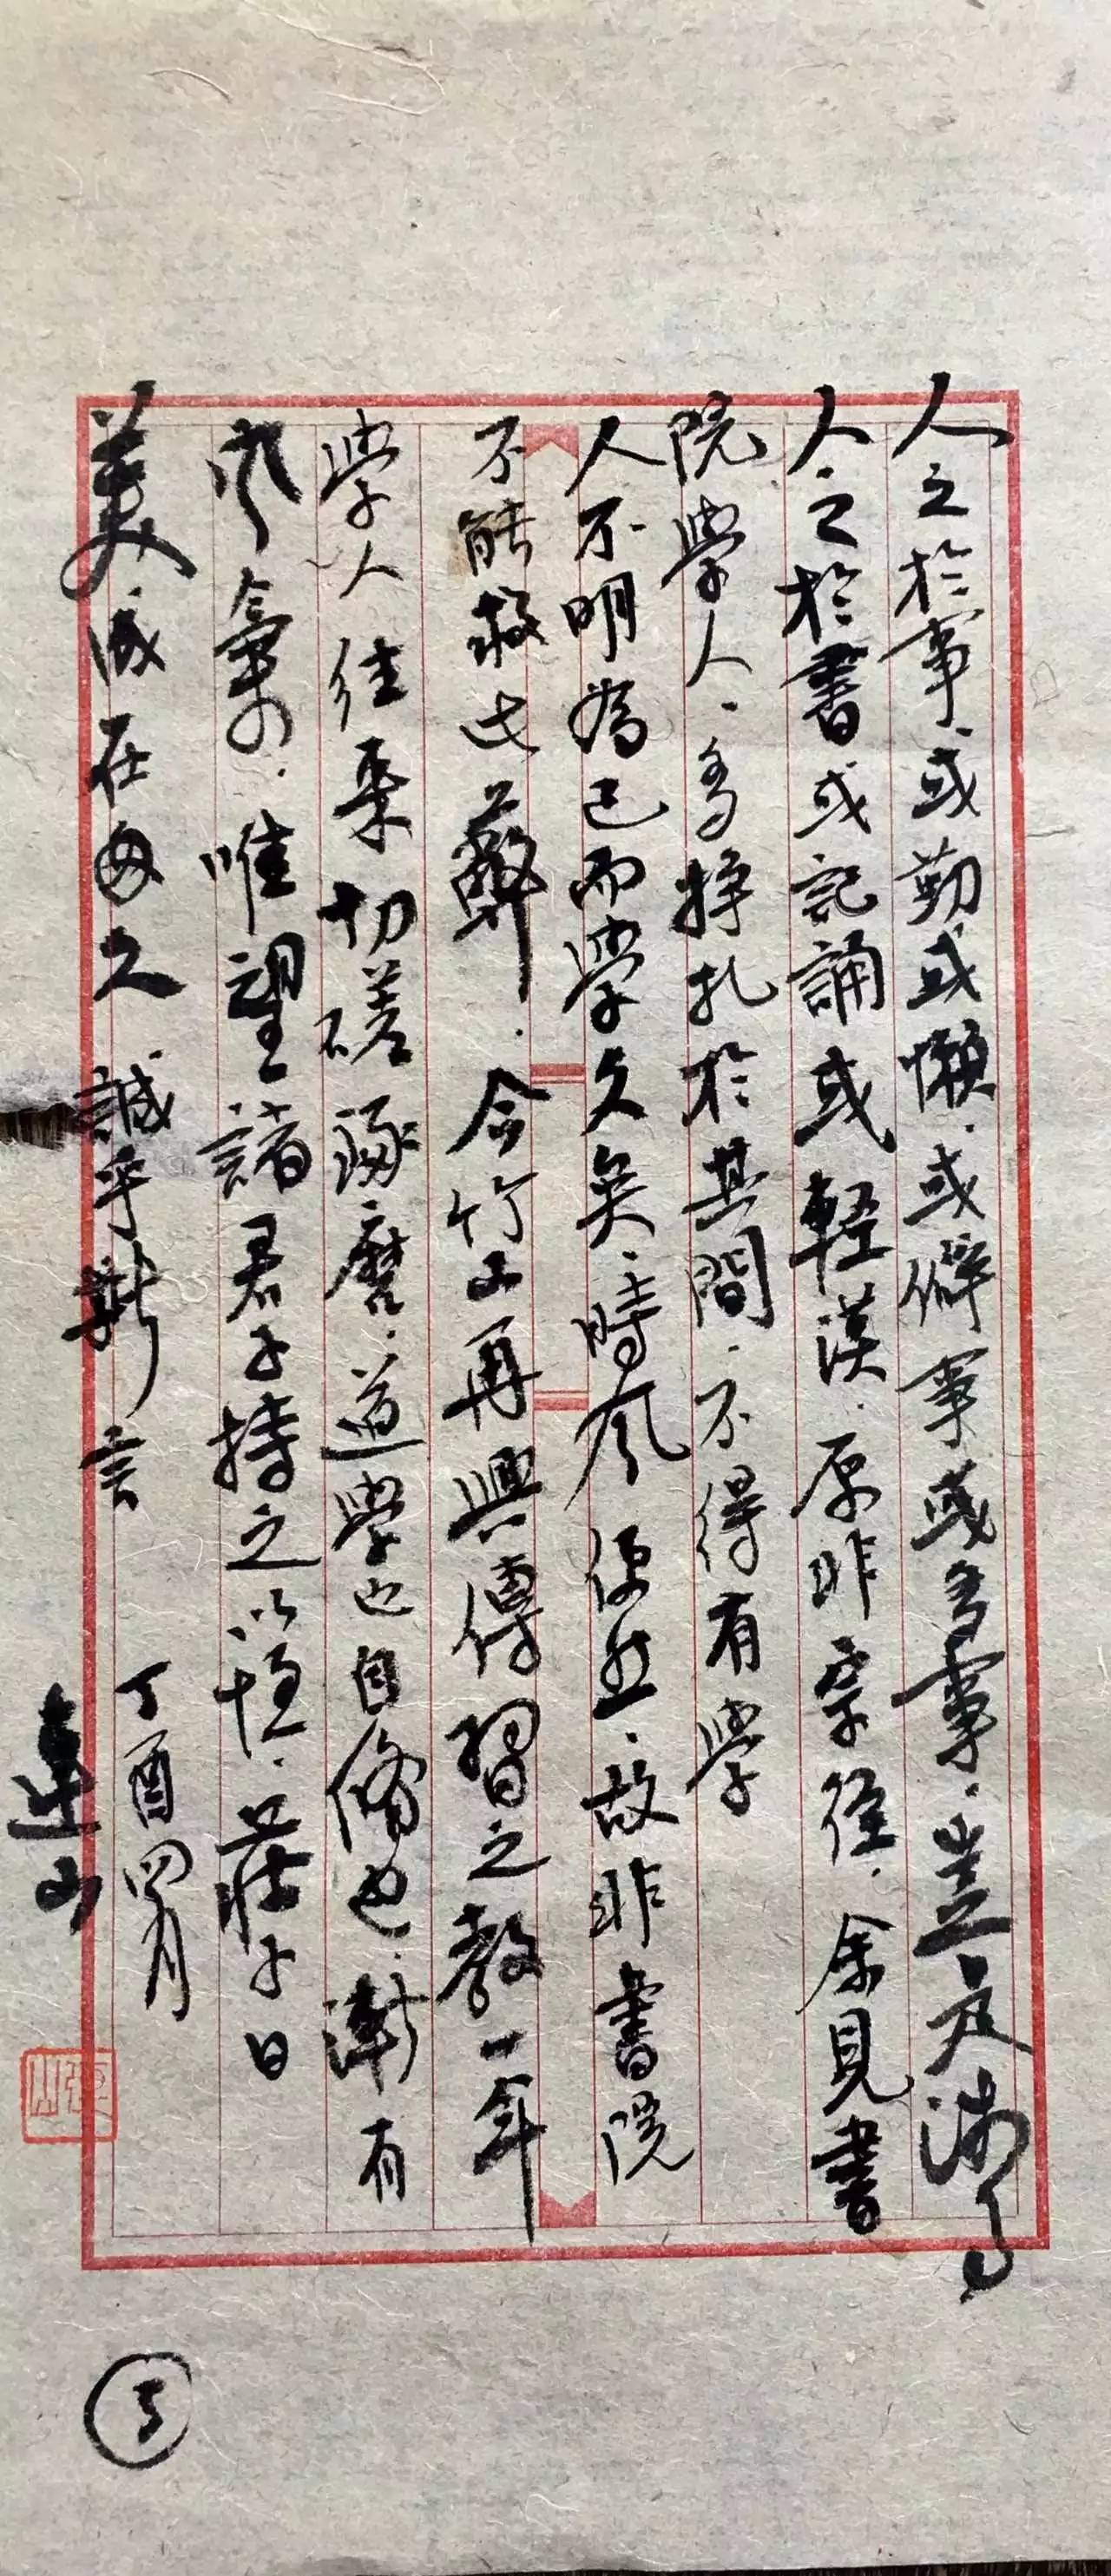 人之於事或勤或懶或僻事或多事豈
人之於書或記誦或輕漠原非字徑余見書
院學人多掙扎於其間不得有學
人不明為己而學久矣時風使然故非書院
不能救此弊今竹山再興傳習之教一年
學人往來切磋琢磨道學也自脩也漸有
氣唯望諸君子持之以恆莊子曰
美成在久誠乎斯言
丁酉四月
連山